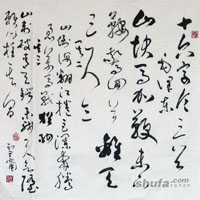 十六字令三首
毛泽东
山快马加鞭未下
鞍惊回首离天
三尺三
山倒海翻江卷巨澜奔腾
急万马战犹酣
其三
山刺破青天锷未残天欲堕
赖以拄其间
shufa.com